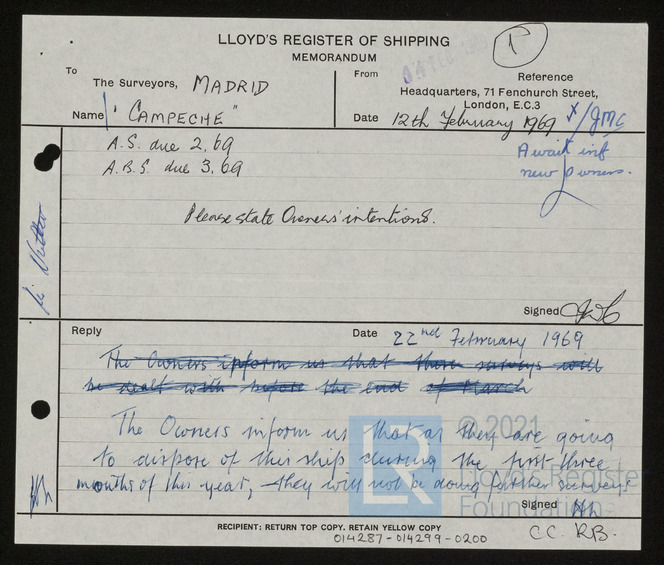 LLOYD'S REGISTER OF SHIPPING
MEMORANDUM
1
To
The Surveyors, MADRID
From
Reference
Headquarters, 71 Fenchurch Street,
London, E.C.3
Name "CAMPECHE"
Date 12th February 1969
X/JMC
A.S. due 2.69
A.B.S. due 3.69
Await inf
new owners.
Please state Owners' intentions.
Signed
Reply
Date 22nd February 1969
The Owners inform us that these surveys will
be dealt with before the end of March
The Owners inform us that as they are going
to dispose of this ship during the first three
months of this year, they will not be doing further surveys.
Signed
LR
© 2021
Lloyd's Register
Foundation
RECIPIENT: RETURN TOP COPY. RETAIN YELLOW COPY
CC. RB.
014287-014299-0200